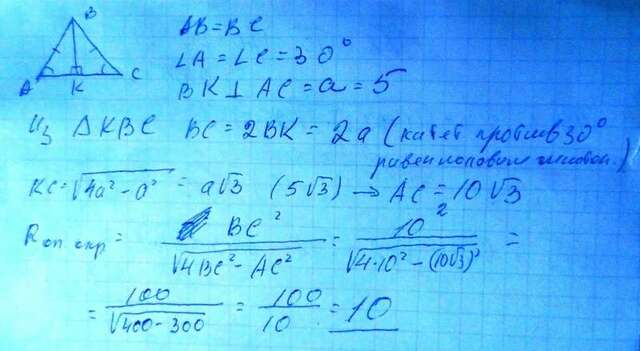 B
A
K
C
AB = BC
∠A = ∠C = 30°
BK ⊥ AC = a = 5
Из △KBC BC = 2BK = 2a (катет против 30°
равен половине гипотен.)
KC = √4a² - a² = a√3 (5√3) → AC = 10√3
R оп окр = BC² / √4BC² - AC² = 10² / √4·10² - (10√3)² =
= 100 / √400 - 300 = 100 / 10 = 10